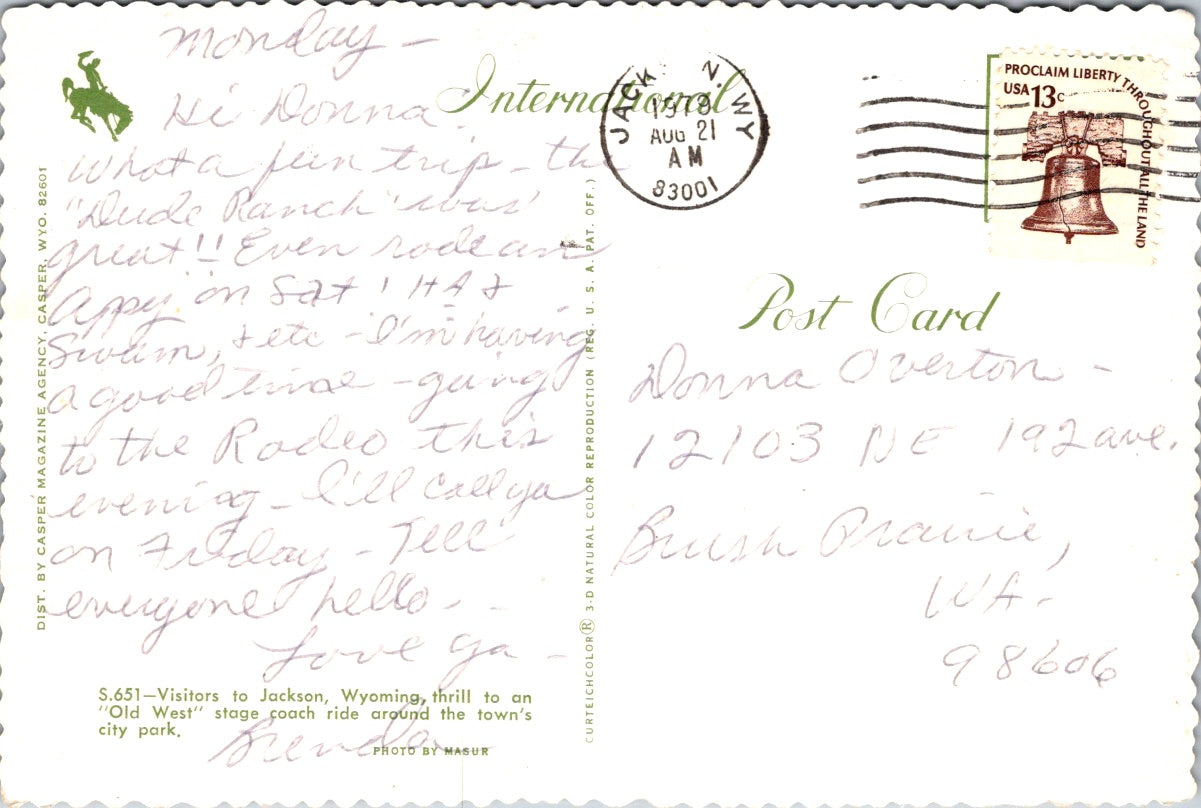 Monday -
Hi Donna!
What a fun trip - the
"Dude Ranch" was
great!! Even rode an
Appy on Sat! HA &
Swam, & etc - I'm having
a good time - going
to the Rodeo this
evening - I'll call ya
on Friday - Tell
everyone hello - -
Love ya -
Brenda
S.651—Visitors to Jackson, Wyoming, thrill to an
"Old West" stage coach ride around the town's
city park.
PHOTO BY MASUR
DIST. BY CASPER MAGAZINE AGENCY, CASPER, WYO. 82601
CURTEICHCOLOR ® 3-D NATURAL COLOR REPRODUCTION (REG. U. S. A. PAT. OFF.)
International
JACK N. WY
1978
AUG 21
AM
83001
PROCLAIM LIBERTY THROUGHOUT ALL THE LAND
USA 13c
Post Card
Donna Overton -
12103 NE 192 ave.
Brush Prairie,
WA -
98606